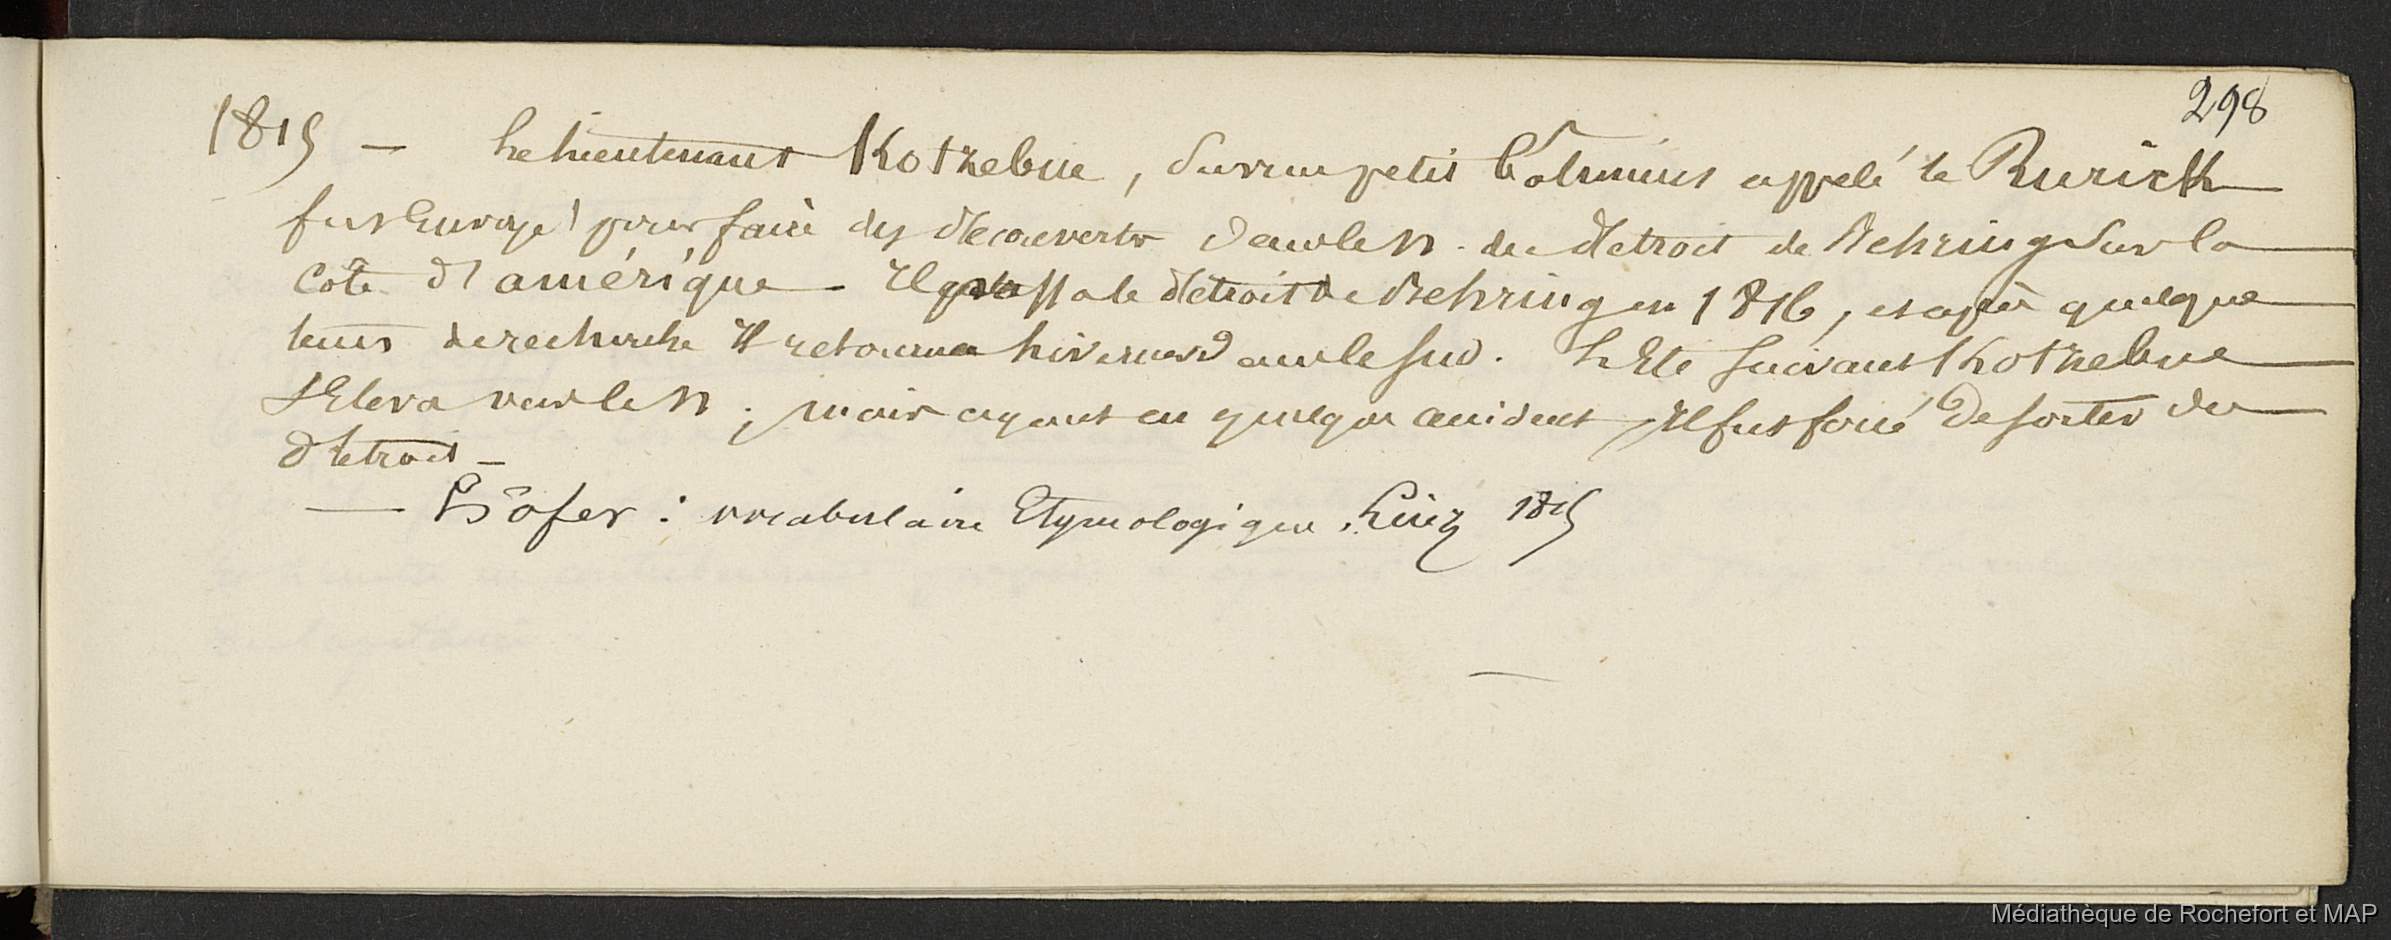 298
1815 — Le Lieutenant Kotzebue, sur un petit Batiment appelé le Rurick
fut Envoyé pour faire des decouvertes dans le N. du detroit de Behring sur la
Cote d'amérique — Il passa le detroit de Behring en 1816, et après quelque
tems de recherche il retourna hiverner dans le Sud. L'Eté suivant Kotzebue
s'Eleva vers le N; mais ayant eu quelque accident, Il fut forcé de sortir du
detroit —
— Höfer: vocabulaire Etymologique. 1815
Médiathèque de Rochefort et MAP